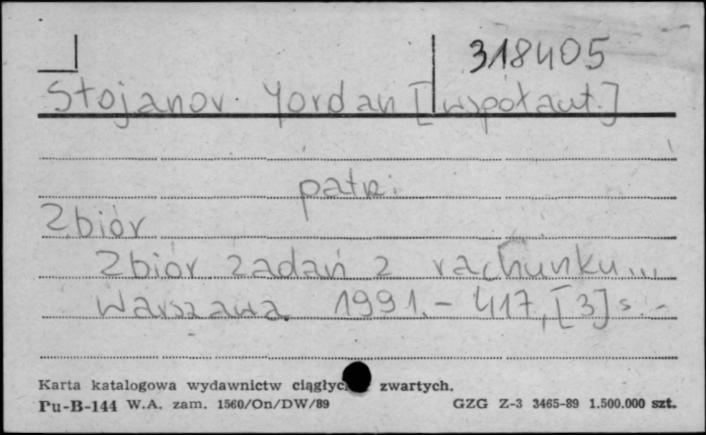 318405
Stojanov Yordan [współaut.]
patrz:
Zbiór
Zbiór zadań z rachunku...
Warszawa 1991.- 417,[3]s.-
Karta katalogowa wydawnictw ciągłyc zwartych.
Pu-B-144 W.A. zam. 1560/On/DW/89 GZG Z-3 3465-89 1.500.000 szt.